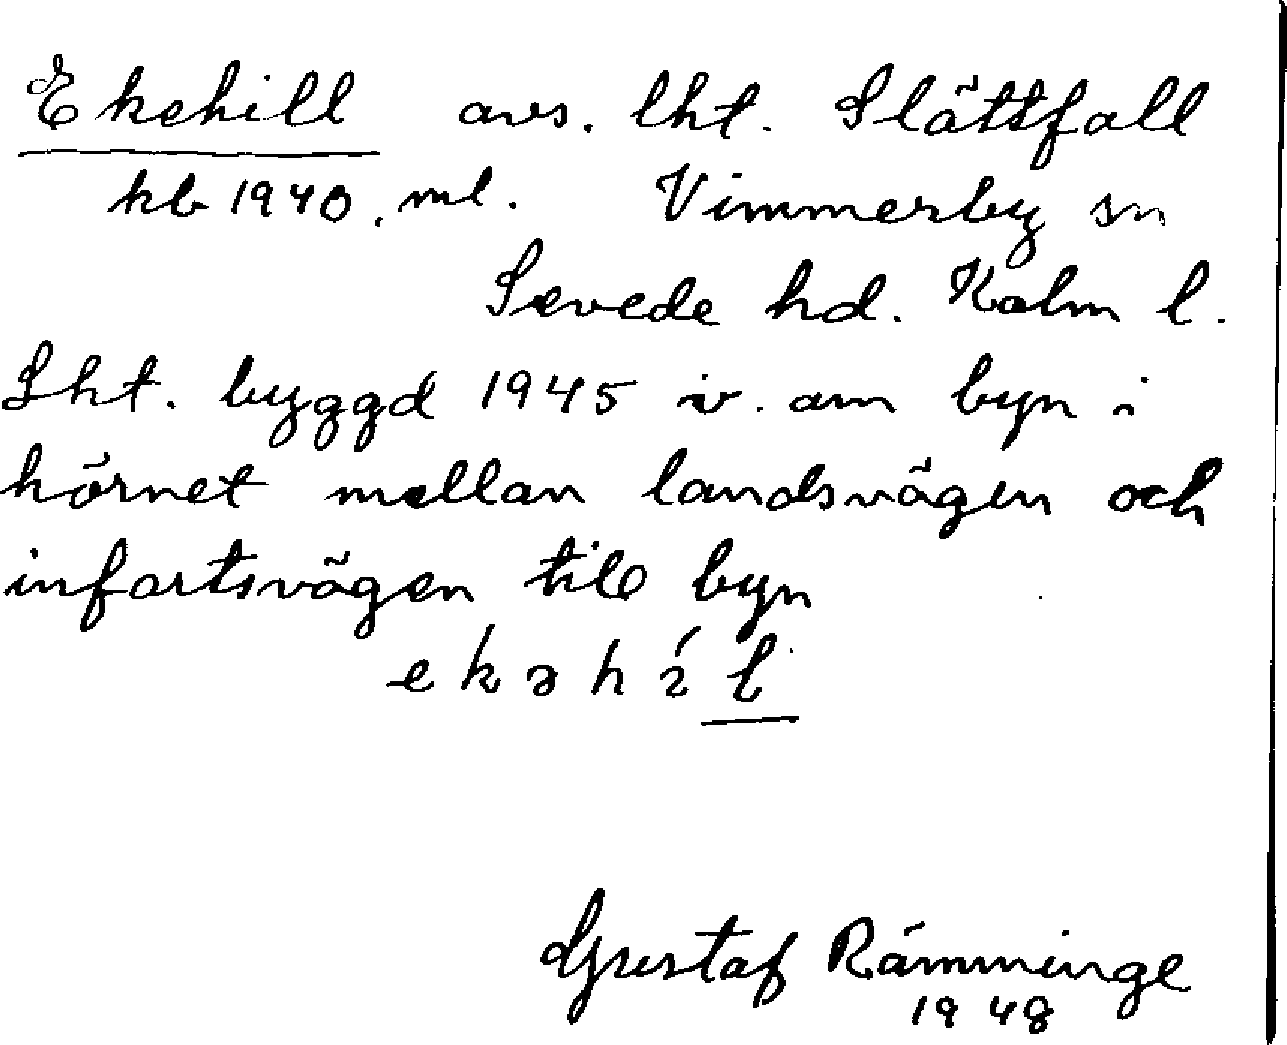 Ekehill avs. lht. Slättfall
kb 1940, ml. Vimmerby sn
Sevede hd. Kalm l.
Lht. byggd 1945 i v. om byn i
hörnet mellan landsvägen och
infartsvägen till byn
e k ə h í l
Gustaf Rämminge
1948